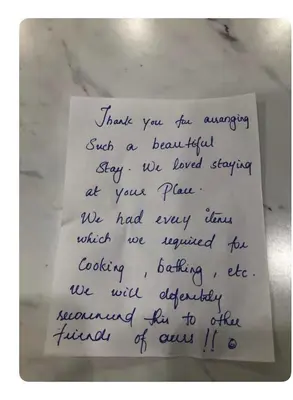 Thank you for arranging
Such a beautiful
Stay. We loved staying
at your Place.
We had every item
which we required for
Cooking, bathing, etc.
We will definitely
recommend this to other
friends of ours!!